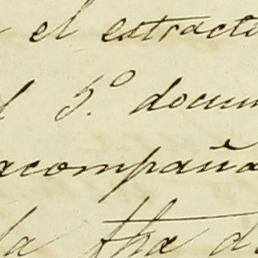 el extracto
5.º docum
acompaña
la fha d